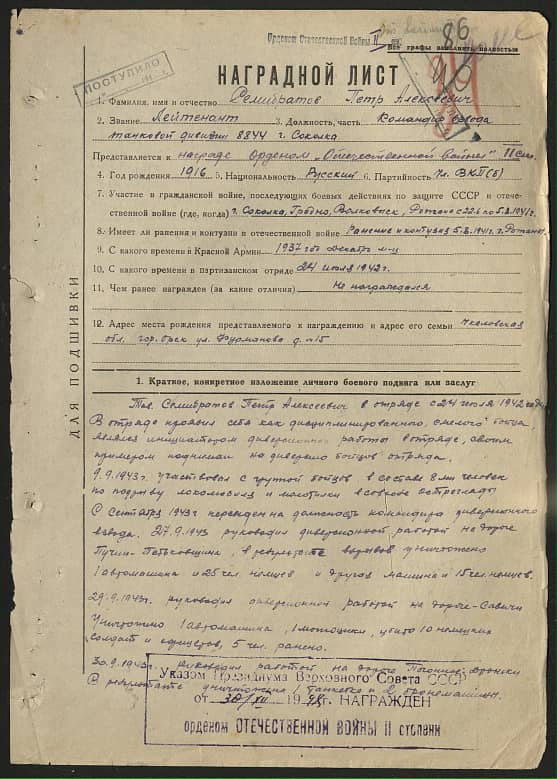 Орденом Отечественной Войны II
86
Все графы заполнять полностью
ПОСТУПИЛО
НАГРАДНОЙ ЛИСТ
1. Фамилия, имя и отчество Селибратов Петр Алексеевич
2. Звание Лейтенант 3. Должность, часть Командир взвода
танковой дивизии 8844 г. Соколка
Представляется к награде орденом „Отечественной войны" II степ.
4. Год рождения 1916 5. Национальность Русский 6. Партийность Чл. ВКП(б)
7. Участие в гражданской войне, последующих боевых действиях по защите СССР и отече-
ственной войне (где, когда) г. Соколка, Гродно, Волковыск, с 22.6 по 5.8.1941г.
8. Имеет ли ранения и контузии в отечественной войне Ранение и контузия 5.8.1941г.
9. С какого времени в Красной Армии 1937 год Декабрь м-ц
10. С какого времени в партизанском отряде 24 июля 1942г.
11. Чем ранее награжден (за какие отличия) Не награждался
12. Адрес места рождения представляемого к награждению и адрес его семьи Чкаловская
обл. гор. Орск ул. Фурманова д. №15
ДЛЯ ПОДШИВКИ
1. Краткое, конкретное изложение личного боевого подвига или заслуг
Тов. Селибратов Петр Алексеевич в отряде с 24 июля 1942 года
В отряде проявил себя как дисциплинированного, смелого бойца,
являлся инициатором диверсионной работы в отряде, своим
примером поднимал на диверсию бойцов отряда.
9.9.1943г. участвовал с группой бойцов в составе 8 ми человек
по подрыву локомобиля и молотилки в совхозе
С Сентября 1943г переведен на должность командира диверсионного
взвода. 27.9.1943 руководил диверсионной работой на дороге
в результате взрывов уничтожено
1 автомашина и 25 чел. немцев и другая машина и 15 чел. немцев.
29.9.1943г. руководил диверсионной работой на дороге-Савичи
Уничтожено 1 автомашина, 1 мотоцикл, убито 10 немецких
солдат и офицеров, 5 чел. ранено.
30.9.1943г. руководил работой на дороге
В результате уничтожена 1 танкетка и 2 бронемашины.
Указом Президиума Верховного Совета СССР
от 30/XII 1948г. НАГРАЖДЕН
орденом ОТЕЧЕСТВЕННОЙ ВОЙНЫ II степени